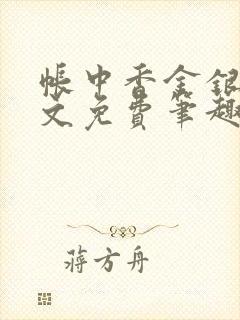 帐中香金银
文免费笔趣
蒋方舟